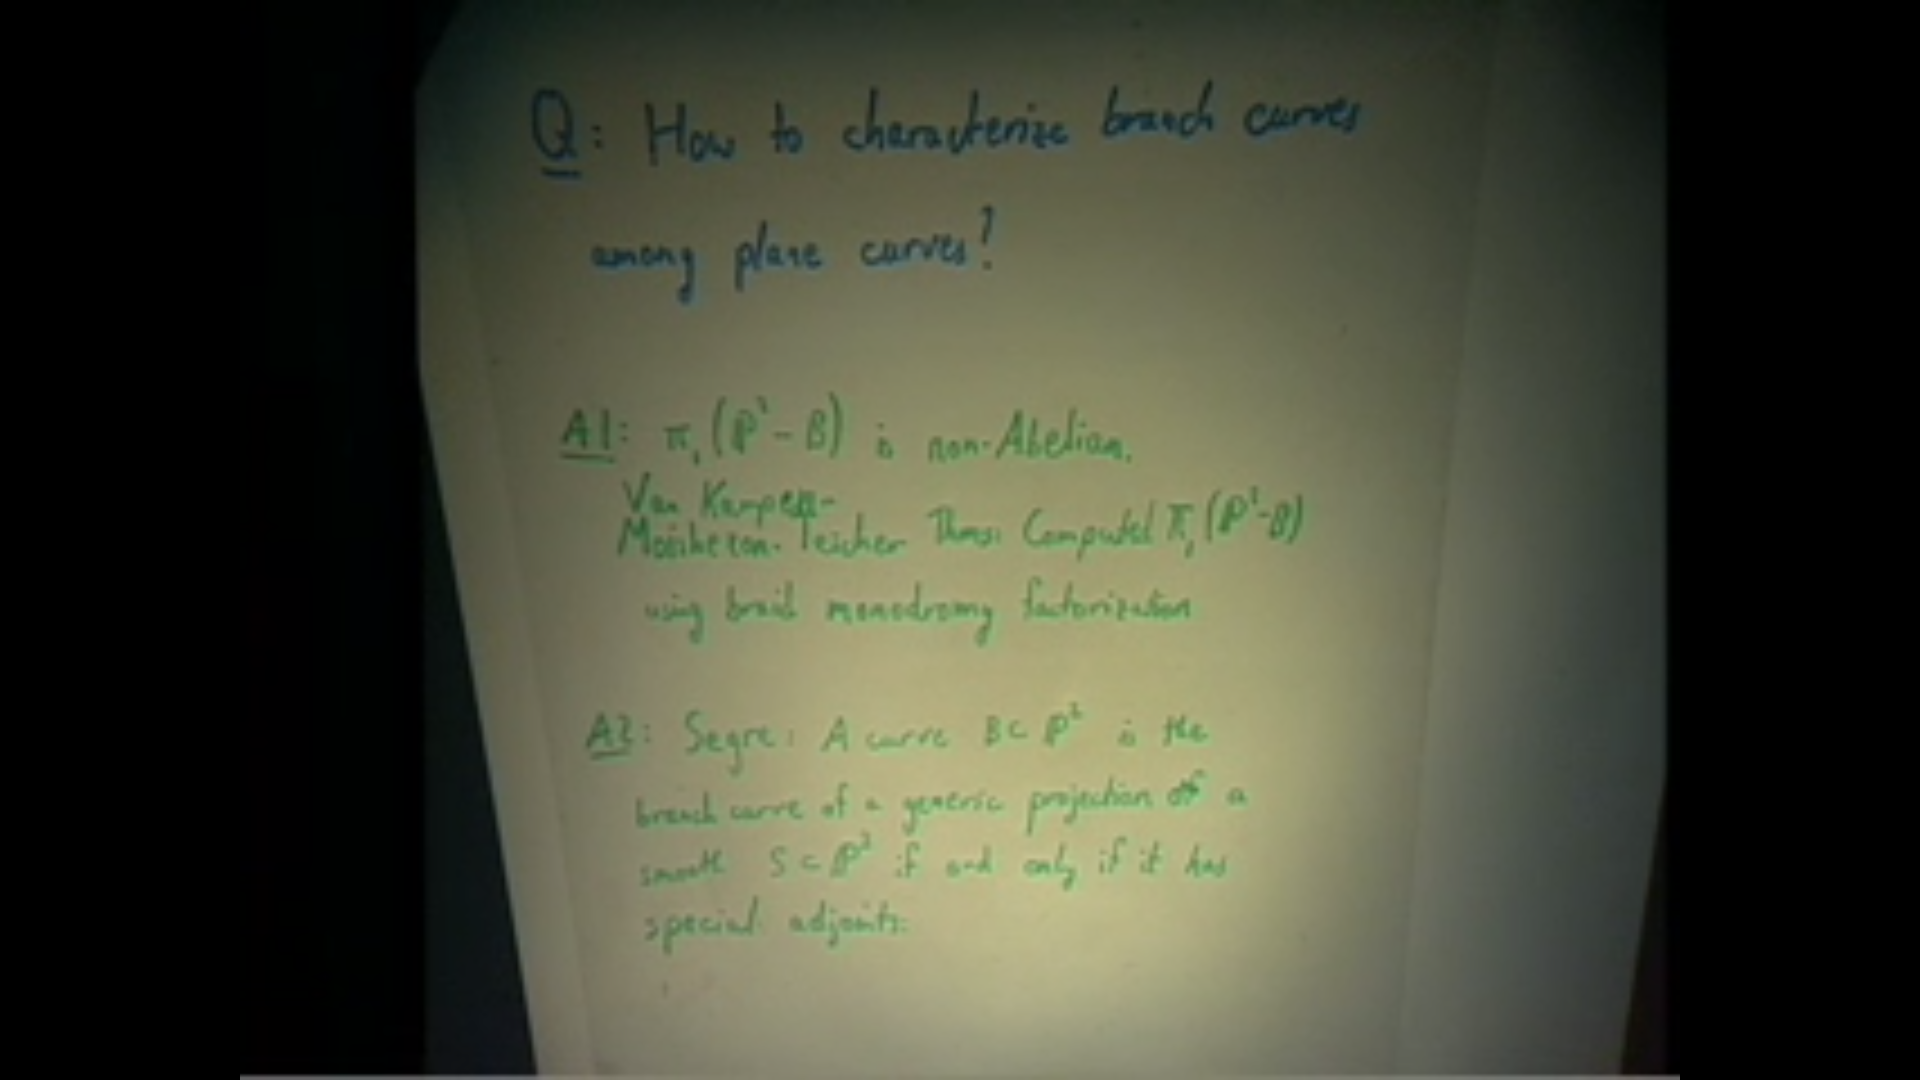 Q: How to characterize branch curves
among plane curves?
A1: π₁(ℙ²-B) is non-Abelian.
Van Kampen-
Moishezon-Teicher Thms: Computed π₁(ℙ²-B)
using braid monodromy factorization
A2: Segre: A curve B⊂ℙ² is the
branch curve of a generic projection of a
smooth S⊂ℙ³ if and only if it has
special adjoints.